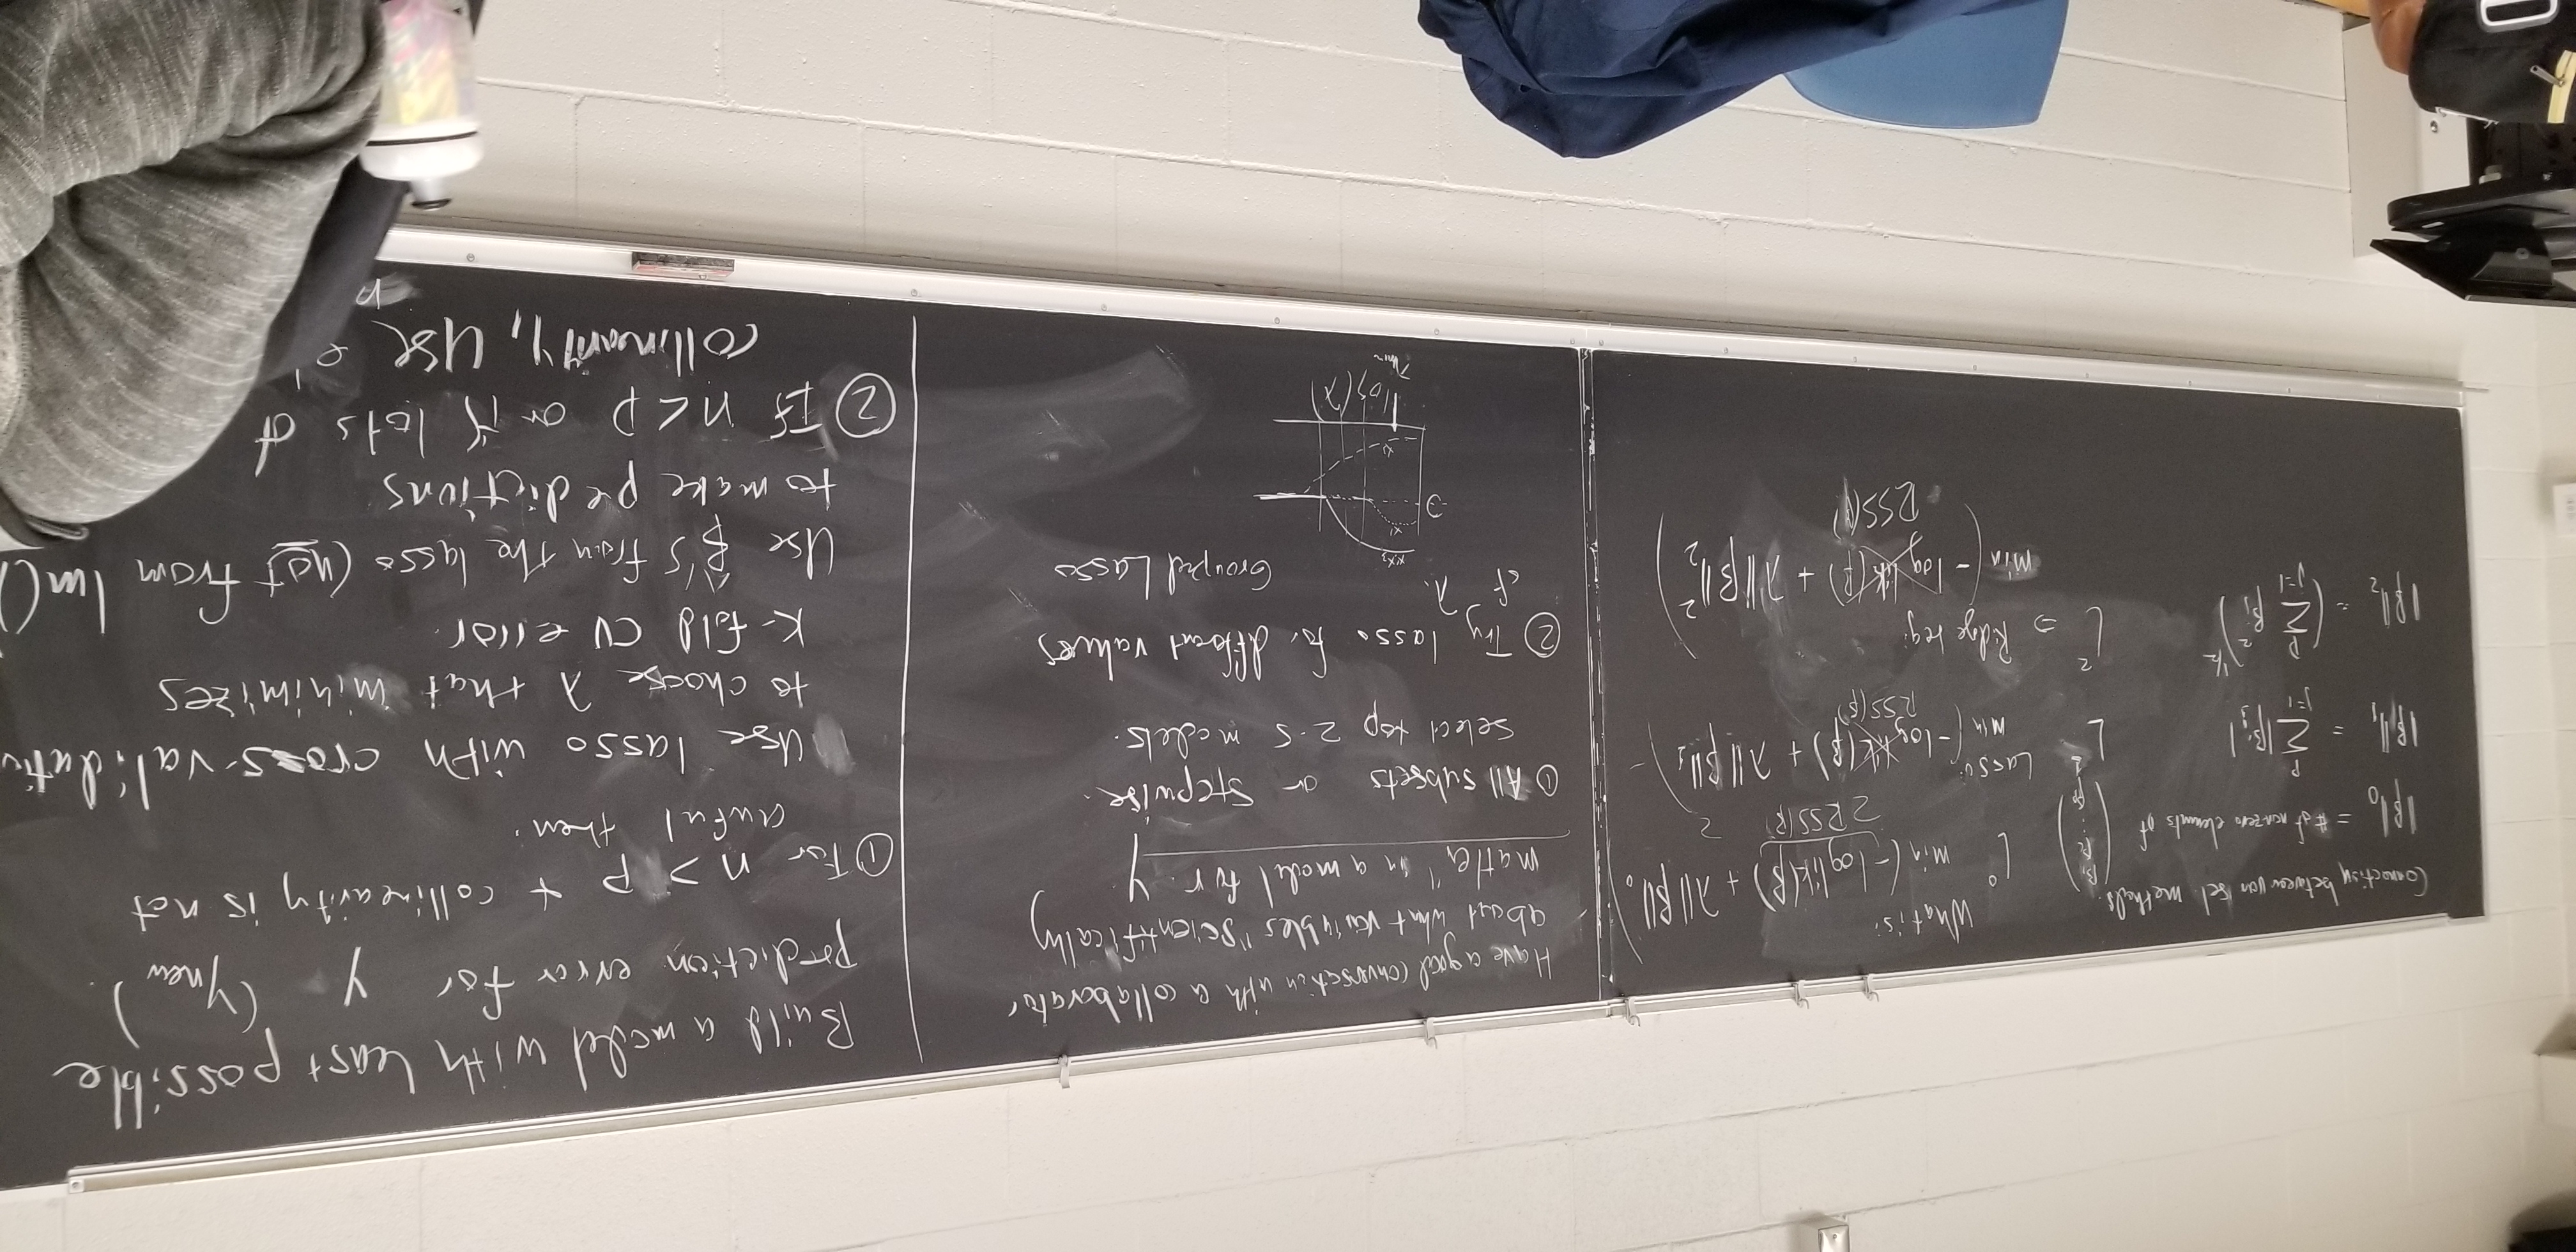 Connection between var sel methods.
||β||₀ = # of nonzero elements of (β₁ β₂ ⋮ βp)
||β||₁ = Σ_{j=1}^{p} |βj|
||β||₂ = (Σ_{j=1}^{p} βj²)^{1/2}
What is:
L⁰ min (-loglik(β) + λ||β||₀
2RSS(β) 2
L¹ Lasso:
min (-log lik(β) + λ||β||₁)
RSS(β)
L² ⇒ Ridge reg:
min (-log lik(β) + λ||β||₂²)
RSS(β)
Have a good conversation with a collaborator
about what variables "scientifically
matter" in a model for y.
① All subsets or stepwise.
Select top 2-5 models.
② Try lasso for different values
of λ.
Grouped Lasso
x₁x₂
x₁
0
x₂
log(λ)
λmin
Build a model with least possible
prediction error for y (ynew).
① For n > p + collinearity is not
awful then.
Use lasso with cross-validation
to choose λ that minimizes
K-fold CV error.
Use β̂'s from the lasso (not from lm()
to make predictions
② If n < p or if lots of
collinearity, use